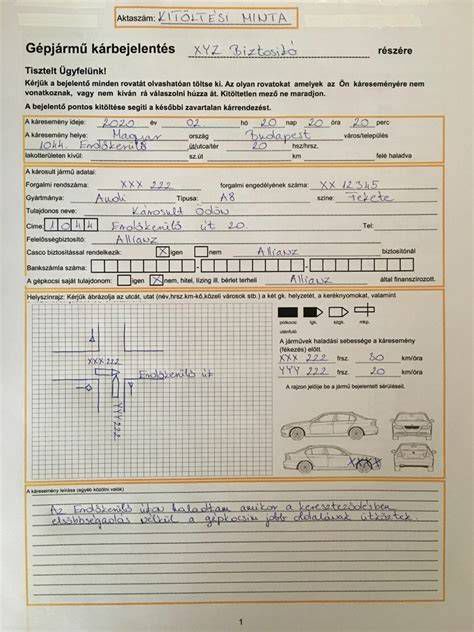 Aktaszám: KITÖLTÉSI MINTA
Gépjármű kárbejelentés XYZ Biztosító részére
Tisztelt Ügyfelünk!
Kérjük a bejelentő minden rovatát olvashatóan töltse ki. Az olyan rovatokat amelyek az Ön káreseményére nem
vonatkoznak, vagy nem kíván rá válaszolni húzza át. Kitöltetlen mező ne maradjon.
A bejelentő pontos kitöltése segíti a későbbi zavartalan kárrendezést.
A káresemény ideje: 2020 év 02 hó 20 nap 20 óra 20 perc
A káresemény helye: Magyar ország Budapest város/település
1044. Endőskerülő út/utca/tér 20 hsz/hrsz.
lakotterületen kívül: sz.út km felé haladva
A károsult jármű adatai:
Forgalmi rendszáma: XXX 222 forgalmi engedélyének száma: XX 12345
Gyártmánya: Audi Típusa: A8 színe: Fekete
Tulajdonos neve: Károsult Ödön
Címe: 1044 Endőskerülő út 20. Tel:
Felelősségbiztosító: Allianz
Casco biztosítással rendelkezik: X igen nem Allianz biztosítónál
Bankszámla száma:
A gépkocsi saját tulajdonom: igen X nem, hitel, lízing ill. bérlet terheli Allianz által finanszírozott.
Helyszínrajz: Kérjük ábrázolja az utcát, utat (név,hrsz.km-kő,közeli városok stb.) a két gk. helyzetét, a keréknyomokat, valamint
A járművek haladási sebessége a káresemény
(fékezés) előtt
XXX 222 frsz. 50 km/óra
YYY 222 frsz. 20 km/óra
A rajzon jelölje be a jármű bejelentett sérüléseit.
XXX 222
Endőskerülő út
YYY 222
A káresemény leírása (egyéb közölni valók)
Az Endőskerülő úton haladtam amikor a kereszteződésben
elsőbbségadás nélkül a gépkocsim jobb oldalának ütköztek.
1